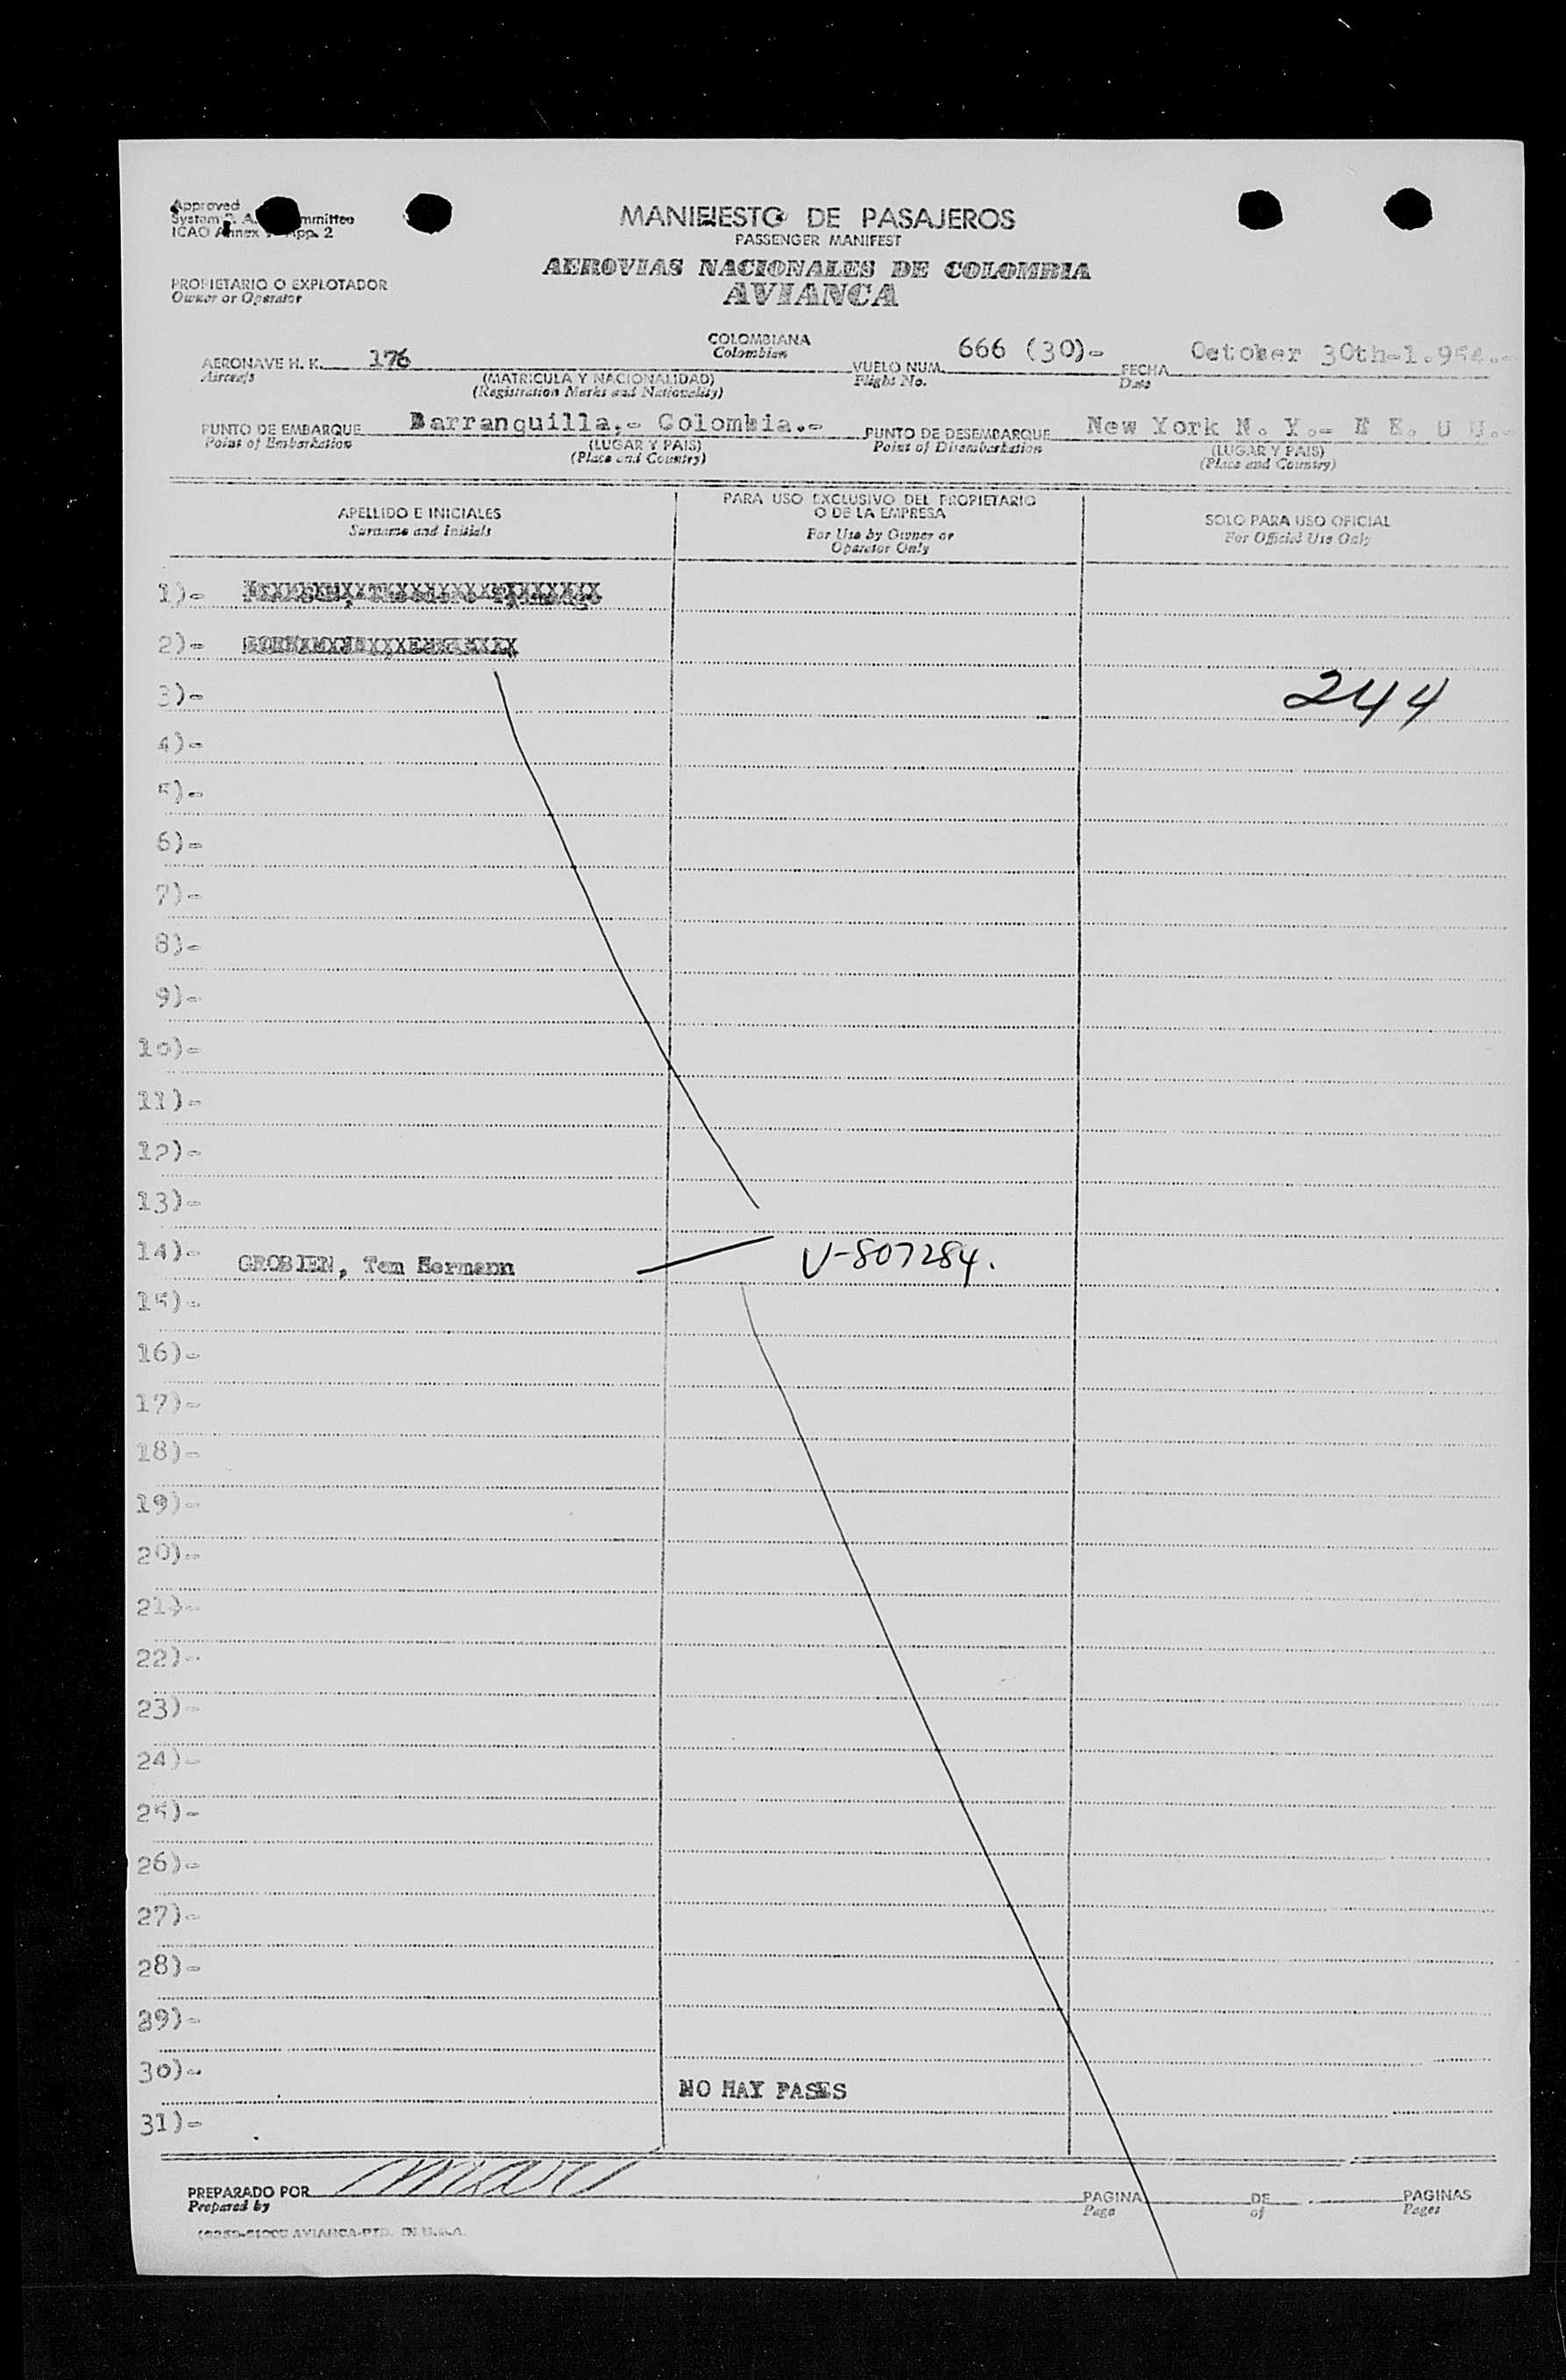 Approved
System
ICAO Annex App. 2
MANIFIESTO DE PASAJEROS
PASSENGER MANIFEST
AEROVIAS NACIONALES DE COLOMBIA
AVIANCA
PROPIETARIO O EXPLOTADOR
Owner or Operator
COLOMBIANA
Colombian
AERONAVE H. K. 176 VUELO NUM. 666 (30)- FECHA October 30th-1.954.-
Aircrafs (MATRICULA Y NACIONALIDAD) Flight No. Date
(Registration Marks and Nationality)
PUNTO DE EMBARQUE Barranquilla.- Colombia.- PUNTO DE DESEMBARQUE New York N. Y.- E E. U U.-
Point of Embarkation (LUGAR Y PAIS) Point of Disembarkation (LUGAR Y PAIS)
(Place and Country) (Place and Country)
APELLIDO E INICIALES PARA USO EXCLUSIVO DEL PROPIETARIO O DE LA EMPRESA SOLO PARA USO OFICIAL
Surname and Initials For Use by Owner or Operator Only For Official Use Only
1)-
2)-
3)- 244
4)-
5)-
6)-
7)-
8)-
9)-
10)-
11)-
12)-
13)-
14)- GROBIEN, Tem Hermann V-807284.
15)-
16)-
17)-
18)-
19)-
20)-
21)-
22)-
23)-
24)-
25)-
26)-
27)-
28)-
29)-
30)- NO HAY PASES
31)-
PREPARADO POR PAGINA DE PAGINAS
Prepared by Page of Pages
AVIANCA-PTD. IN U.S.A.